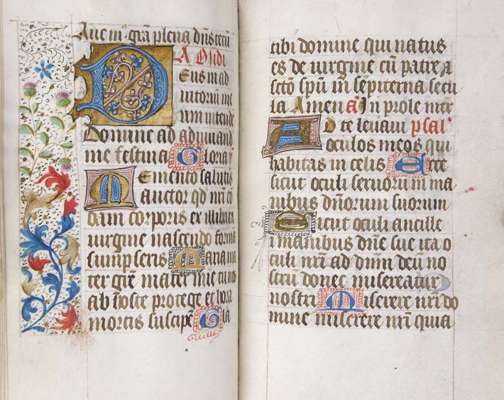 Aue m gra plena dns tecu
A Osidi
Deus in ad
iutorium me
um intende
Domine ad adiuuand
me festina Gloria
Memento salutis
auctor qd nri
dam corporis ex illibata
uirgine nascendo forma
sumpseris Maria ma
ter gre mater mie tu nos
ab hoste protege et hora
mortis suscipe Gla
tibi domine qui natus
es de uirgine cu patre
scto spu in sempiterna secu
la Amen A In prole mr
Ad te leuaui psal
oculos meos qui
habitas in celis Ecce
sicut oculi seruorum in ma
nibus dnorum suorum
Sicut oculi ancille
in manibus dne sue ita o
culi nri ad dnm deu no
stru donec misereatur
nostri Miserere nri do
mine miserere nri quia